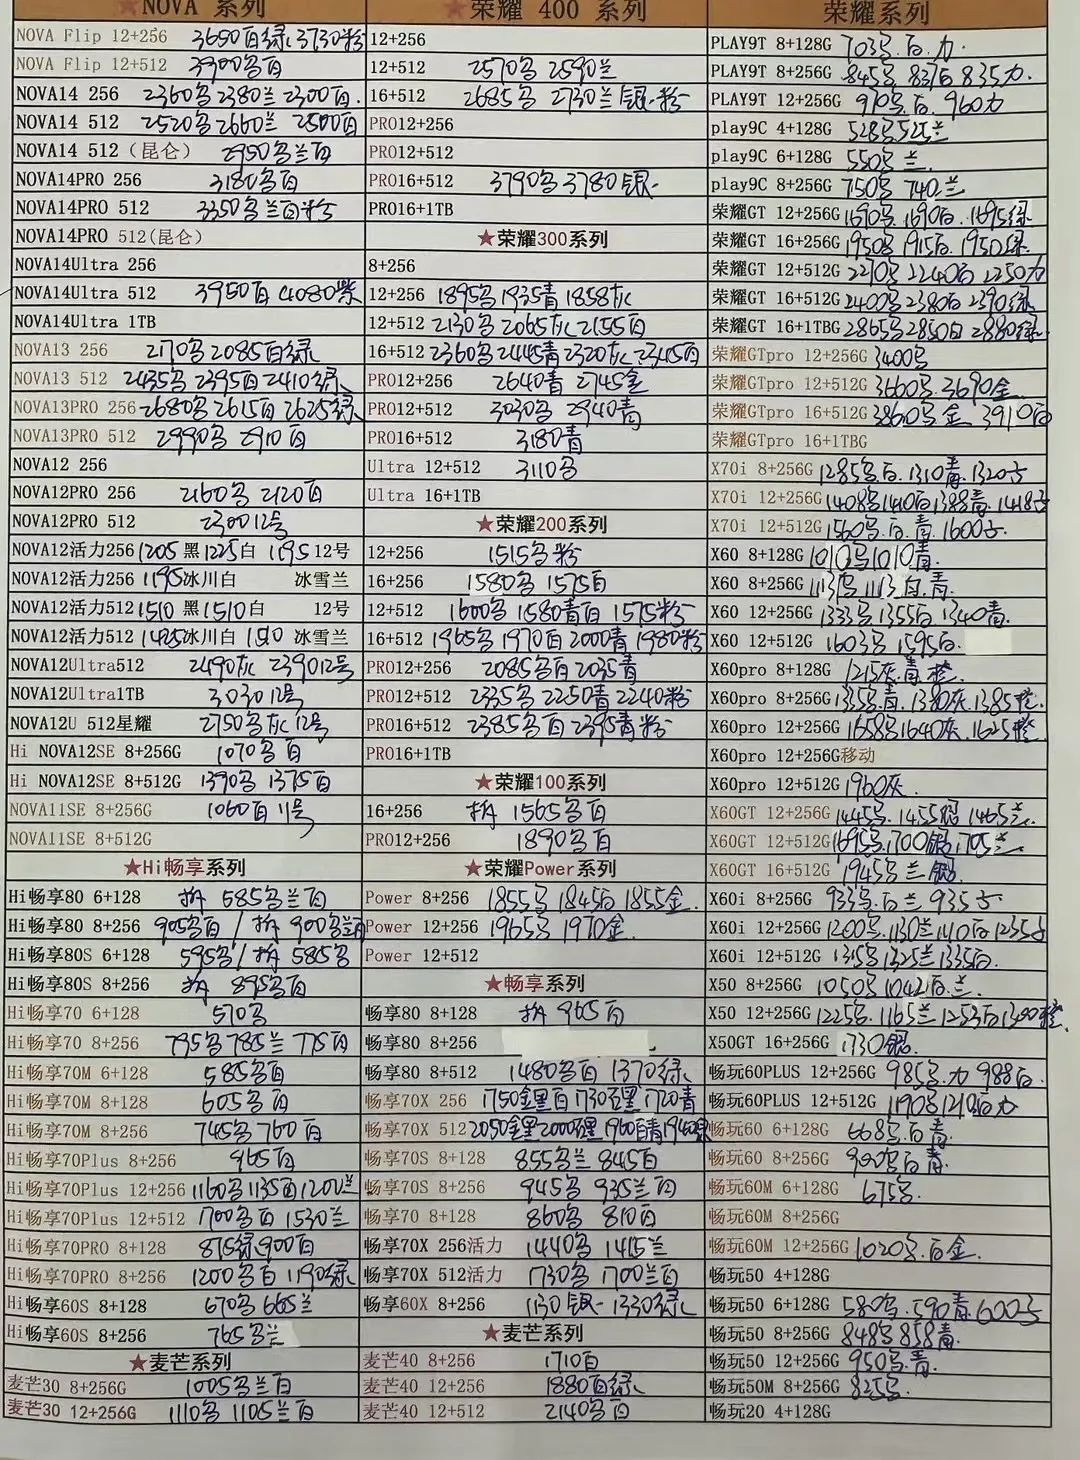 ★NOVA 系列
NOVA Flip 12+256 3650百绿 3730粉
NOVA Flip 12+512 3900多百
NOVA14 256 2360多2380兰2300百
NOVA14 512 2520多2660兰 2500百
NOVA14 512（昆仑） 2950多兰百
NOVA14PRO 256 3180多百
NOVA14PRO 512 3350多兰百粉
NOVA14PRO 512(昆仑)
NOVA14Ultra 256
NOVA14Ultra 512 3950百 4080紫
NOVA14Ultra 1TB
NOVA13 256 2170多2085百绿
NOVA13 512 2435多2395百2410绿
NOVA13PRO 256 2680多2615百2625绿
NOVA13PRO 512 2990多2910百
NOVA12 256
NOVA12PRO 256 2160多2120百
NOVA12PRO 512 230012号
NOVA12活力256 1205黑1225白 1195 12号
NOVA12活力256 1195冰川白 冰雪兰
NOVA12活力512 1510黑1510白 12号
NOVA12活力512 1495冰川白 1510 冰雪兰
NOVA12Ultra512 2490灰 239012号
NOVA12Ultra1TB 303012号
NOVA12U 512星耀 2750多灰12号
Hi NOVA12SE 8+256G 1070多百
Hi NOVA12SE 8+512G 1390多1375百
NOVA11SE 8+256G 1060百11号
NOVA11SE 8+512G
★Hi畅享系列
Hi畅享80 6+128 拆585多兰百
Hi畅享80 8+256 905多百/拆900多兰百
Hi畅享80S 6+128 595多/拆585多
Hi畅享80S 8+256 拆 895多百
Hi畅享70 6+128 570多
Hi畅享70 8+256 795多785兰775百
Hi畅享70M 6+128 585多百
Hi畅享70M 8+128 605多百
Hi畅享70M 8+256 745多760百
Hi畅享70Plus 8+256 965百
Hi畅享70Plus 12+256 1160多1135百1200兰
Hi畅享70Plus 12+512 1700多百1530兰
Hi畅享70PRO 8+128 875绿900百
Hi畅享70PRO 8+256 1200多百1190绿
Hi畅享60S 8+128 670多665兰
Hi畅享60S 8+256 765多兰
★麦芒系列
麦芒30 8+256G 1005多兰百
麦芒30 12+256G 1110多1105兰百
★荣耀 400 系列
12+256
12+512 2570多2590兰
16+512 2685多 2730兰银粉
PRO12+256
PRO12+512
PRO16+512 3790多3780银
PRO16+1TB
★荣耀300系列
8+256
12+256 1895多1935青1858灰
12+512 2130多2065灰2155百
16+512 2360多2445青2320灰2345百
PRO12+256 2640青2745金
PRO12+512 3030多2940青
PRO16+512 3180青
Ultra 12+512 3110多
Ultra 16+1TB
★荣耀200系列
12+256 1515多粉
16+256 1580多1575百
12+512 1600多1580青百1575粉
16+512 1965多1970百2000青1980粉
PRO12+256 2085多百2035青
PRO12+512 2335多2250青2240粉
PRO16+512 2385多百2395青粉
PRO16+1TB
★荣耀100系列
16+256 拆1565多百
PRO12+256 1890多百
★荣耀Power系列
Power 8+256 1855多1845百1855金
Power 12+256 1965多1970金
Power 12+512
★畅享系列
畅享80 8+128 拆965百
畅享80 8+256
畅享80 8+512 1480多百1370绿
畅享70X 256 1750金黑百1730百黑1720青
畅享70X 512 2050金黑2000百黑1960百青1940绿
畅享70S 8+128 855多兰845百
畅享70S 8+256 945多935兰百
畅享70 8+128 860多810百
畅享70X 256活力 1440多1415兰
畅享70X 512活力 1730多1700兰百
畅享60X 8+256 1130银1330绿
★麦芒系列
麦芒40 8+256 1710百
麦芒40 12+256 1880百绿
麦芒40 12+512 2140多百
荣耀系列
PLAY9T 8+128G 703多.百.力.
PLAY9T 8+256G 845多837百835力.
PLAY9T 12+256G 970多.百.960力
play9C 4+128G 528多525兰
play9C 6+128G 550多兰.
play9C 8+256G 750多740.兰
荣耀GT 12+256G 1690多.1690百.1695绿
荣耀GT 16+256G 1950多1915百.1950绿
荣耀GT 12+512G 2270多2240百2250力
荣耀GT 16+512G 2400多2380百2390绿
荣耀GT 16+1TBG 2865多2850百2880绿
荣耀GTpro 12+256G 3400多
荣耀GTpro 12+512G 3660多.3690金
荣耀GTpro 16+512G 3860多金.3910百
荣耀GTpro 16+1TBG
X70i 8+256G 1285多百.1310青.1320子
X70i 12+256G 1408多1410百1388青.1418子
X70i 12+512G 1560多.百.青1600子.
X60 8+128G 1010多1010青
X60 8+256G 1113多1113百.青.
X60 12+256G 1333多1355百1340青.
X60 12+512G 1603多1595百.
X60pro 8+128G 1215灰.青.橙.
X60pro 8+256G 1355多.青.1380灰.1385橙.
X60pro 12+256G 1658多1640灰.1625橙
X60pro 12+256G移动
X60pro 12+512G 1960灰.
X60GT 12+256G 1445多.1455银1465兰.
X60GT 12+512G 1695多.1700银1705兰
X60GT 16+512G 1945多兰.银.
X60i 8+256G 933多.百.兰935子.
X60i 12+256G 1200多.1130兰1140百1235子
X60i 12+512G 1345多1325兰1335百.
X50 8+256G 1050多1042百.兰.
X50 12+256G 1225多.1165兰1253百1300橙.
X50GT 16+256G 1730银.
畅玩60PLUS 12+256G 985多.力988百.
畅玩60PLUS 12+512G 1190多1210百力
畅玩60 6+128G 668多.百青.
畅玩60 8+256G 900多百青.
畅玩60M 6+128G 675多.
畅玩60M 8+256G
畅玩60M 12+256G 1020多.百金.
畅玩50 4+128G
畅玩50 6+128G 580多.590青600子
畅玩50 8+256G 848多858青.
畅玩50 12+256G 950多.青.
畅玩50M 8+256G 825多.
畅玩20 4+128G